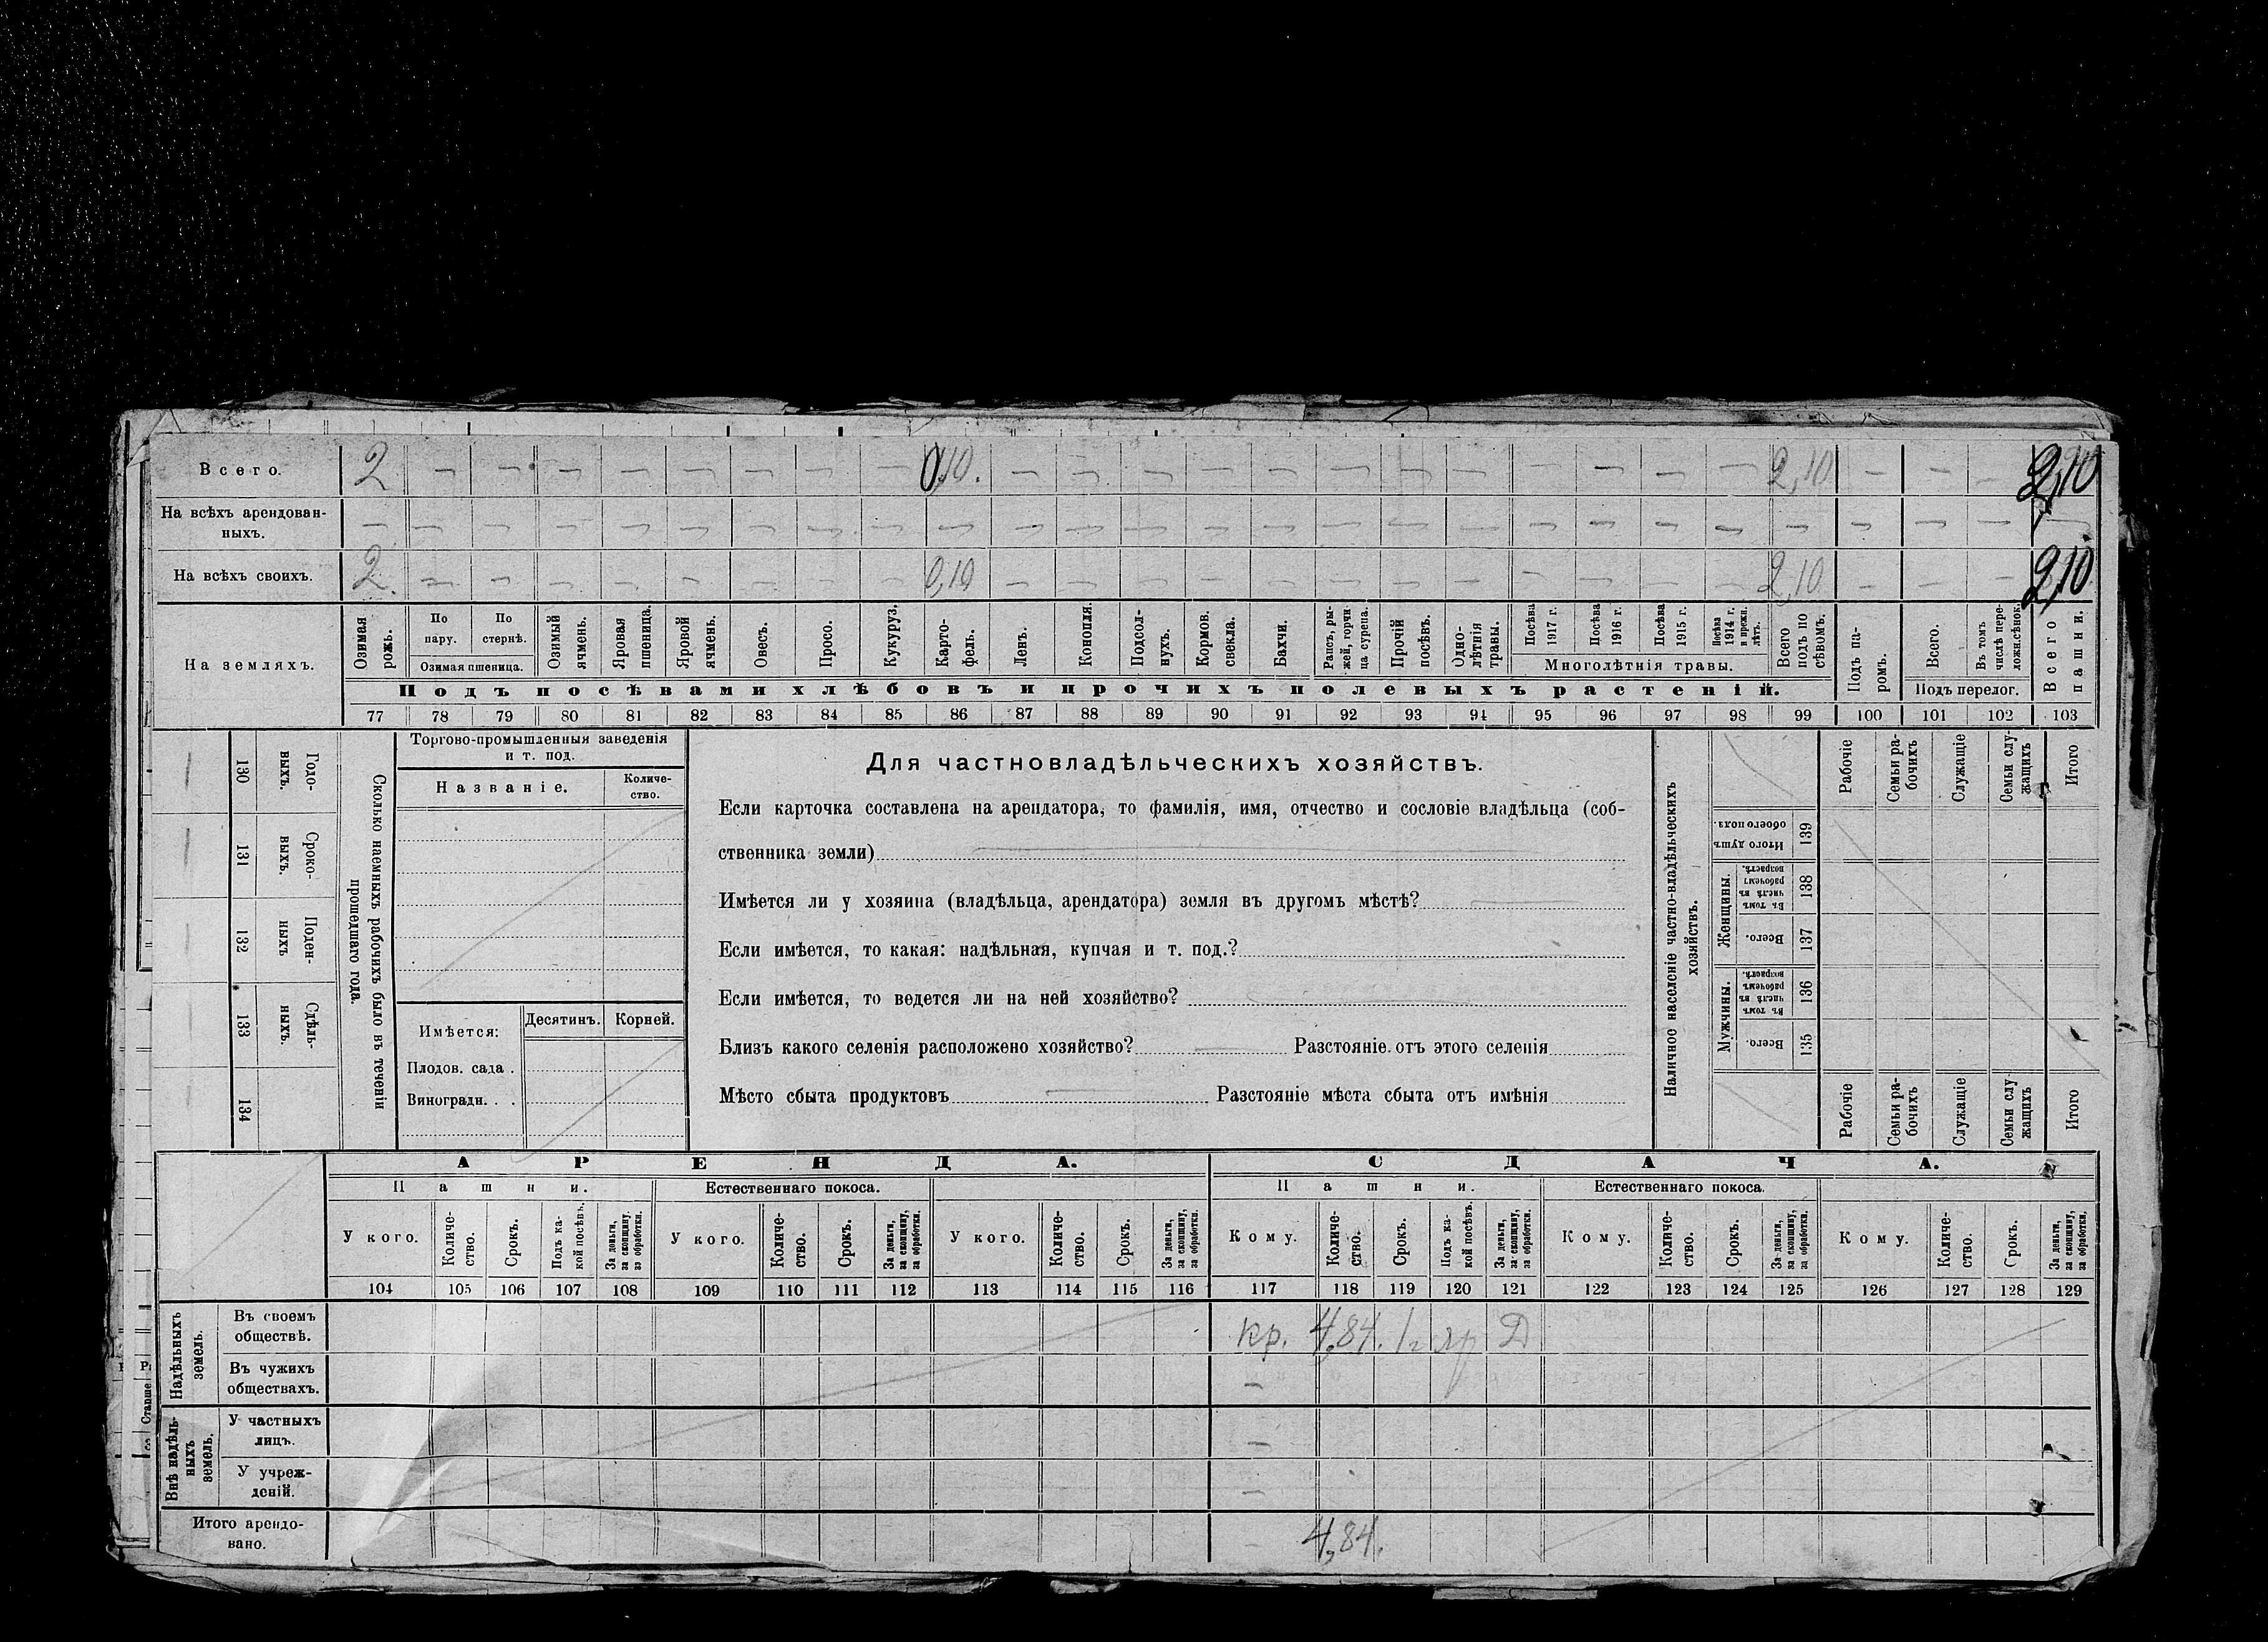 Всего. 2 — — — — — — — — 0,10. — — — — — — — — — — — — 2,10 — — — 2,10
На всѣхъ арендован-
ныхъ. — — — — — — — — — — — — — — — — — — — — — — — — — — —
На всѣхъ своихъ. 2. — — — — — — — — 0,10 — — — — — — — — — — — 2,10 — — — 2,10
На земляхъ.
Озимая рожь.
По пару.
По стернѣ.
Озимая пшеница.
Озимый ячмень.
Яровая пшеница.
Яровой ячмень.
Овесъ.
Просо.
Кукуруз.
Карто-
фель.
Ленъ.
Конопля.
Подсол-
нухъ.
Кормов. свекла.
Бахчи.
Рапсъ, ры-
жей, горчи
ца сурепа.
Прочій посѣвъ.
Одно-
лѣтнія
травы.
Посѣва 1917 г.
Посѣва 1916 г.
Посѣва 1915 г.
Посѣва 1914 г. и прежн. лѣтъ.
Многолѣтнія травы.
Всего подъ по
сѣвомъ.
Подъ па-
ромъ.
Всего.
Въ томъ числѣ пере-
ложн.сѣнок.
Подъ перелог.
Всего пашни.
Подъ посѣвами хлѣбовъ и прочихъ полевыхъ растеній.
77 78 79 80 81 82 83 84 85 86 87 88 89 90 91 92 93 94 95 96 97 98 99 100 101 102 103
130 Годо-
выхъ.
131 Сроко-
выхъ.
132 Поден-
ныхъ
133 Сдѣль-
ныхъ.
134
Сколько наемныхъ рабочихъ было въ теченіи
прошедшаго года.
Торгово-промышленныя заведенія
и т. под.
Названіе. Количе-
ство.
Имѣется: Десятинъ. Корней.
Плодов. сада .
Виноградн. . .
Для частновладѣльческихъ хозяйствъ.
Если карточка составлена на арендатора, то фамилія, имя, отчество и сословіе владѣльца (соб-
ственника земли)
Имѣется ли у хозяина (владѣльца, арендатора) земля въ другомъ мѣстѣ?
Если имѣется, то какая: надѣльная, купчая и т. под.?
Если имѣется, то ведется ли на ней хозяйство?
Близъ какого селенія расположено хозяйство? — Разстояніе отъ этого селенія
Мѣсто сбыта продуктовъ — Разстояніе мѣста сбыта отъ имѣнія
Наличное населеніе частно-владѣльческихъ
хозяйствъ.
Рабочіе
Семьи ра-
бочихъ
Служащіе
Семьи слу-
жащихъ
Итого
Итого душъ
обоего пола. 139
Женщины.
Въ томъ числѣ въ рабочемъ возрастѣ. 138
Всего. 137
Мужчины.
Въ томъ числѣ въ рабочемъ возрастѣ. 136
Всего. 135
Рабочіе
Семьи ра-
бочихъ
Служащіе
Семьи слу-
жащихъ
Итого
АРЕНДА. СДАЧА.
Пашни. Естественнаго покоса. Пашни. Естественнаго покоса.
У кого.
Количе-
ство.
Срокъ.
Подъ ка-
кой посѣвъ.
За деньги,
за скопщину,
за обработки.
У кого.
Количе-
ство.
Срокъ.
За деньги,
за скопщину,
за обработки.
У кого.
Количе-
ство.
Срокъ.
За деньги,
за скопщину,
за обработки.
Кому.
Количе-
ство.
Срокъ.
Подъ ка-
кой посѣвъ.
За деньги,
за скопщину,
за обработки.
Кому.
Количе-
ство.
Срокъ.
За деньги,
за скопщину,
за обработки.
Кому.
Количе-
ство.
Срокъ.
За деньги,
за скопщину,
за обработки.
104 105 106 107 108 109 110 111 112 113 114 115 116 117 118 119 120 121 122 123 124 125 126 127 128 129
Надѣльныхъ
земель.
Въ своемъ
обществѣ. кр. 4,84. 1г яр Д
Въ чужихъ
обществахъ. —
Внѣ надѣль-
ныхъ
земель.
У частныхъ
лицъ. —
У учреж-
деній. —
Итого арендо-
вано. — 4,84.